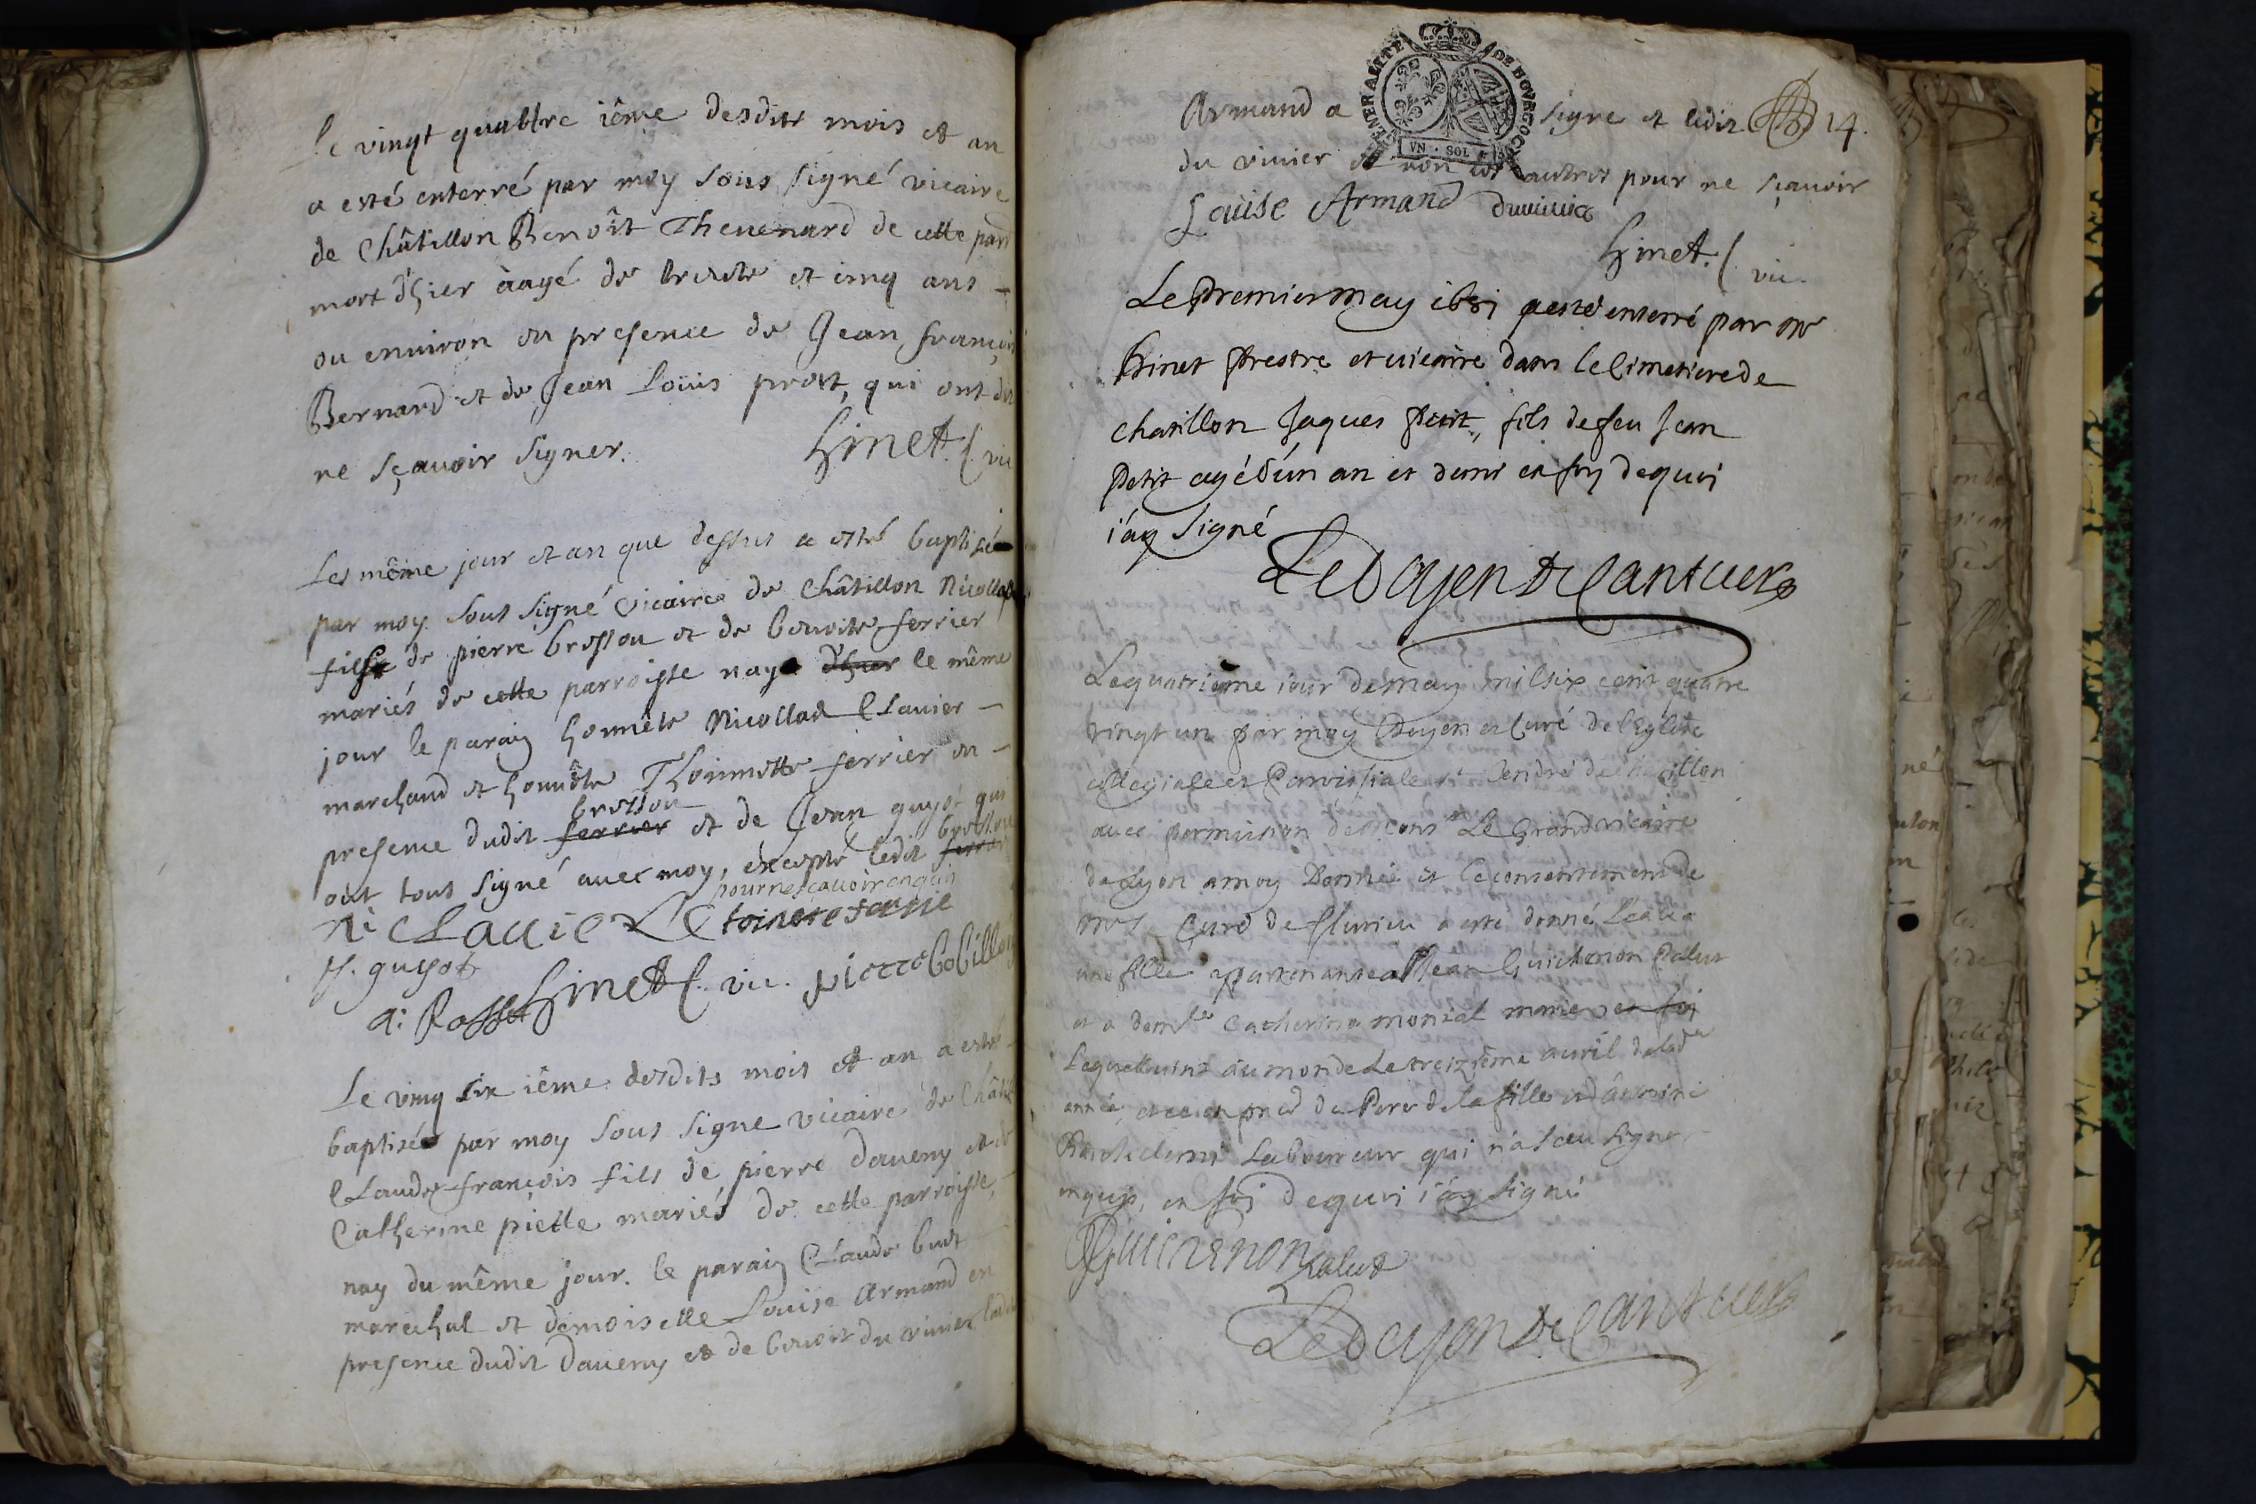 le vingt quattre ième desdits mois et an
a esté enterré par moy sous signé vicaire
de Châtillon Benoît Thevenard de cette par
mort d'hier àagé de trente et cinq ans
ou environ en presence de Jean françois
Bernard et de Jean Loüis prost, qui ont dit
ne sçavoir signer.
hinet. vic
Les même jour et an que dessus a esté baptisé
par moy sous signé vicaire de Châtillon Nicollas
fils de pierre brossou et de benoite ferrier
mariés de cette parroisse nay d'hier le même
jour le parain honnête Nicollas Clavier
marchand et honnête Thoinnette ferrier en
brossou
presence dudit ferrier et de Jean guyot qui
brossou
ont tous signé avec moy, excepté ledit ferrier
pour ne scavoir enquis
Ni Clavier toinete ferrie
J. guyot
a: Rosset hinet. vic. pierre bobillon
Le ving six ième desdits mois et an a esté
baptisé par moy sous signe vicaire de Châtil
Claude françois fils de pierre Daveny et de
Catherine piette mariés de cette parroisse,
nay du même jour. le parain Claude budt
marechal et demoiselle Louise Armand en
presence dudit Daveny et de benoit du vivier lad
Armand a signe et ledit 14.
du vivier et non les autres pour ne sçavoir
Loüise Armand duvivier
hinet. vic.
GENERALITE DE BOVRGOGNE
VN · SOL
Le premier may 1681 a esté enterré par mr
hinet prestre et vicaire dans le cimetiere de
chatillon Jaques petit, fils de feu Jean
Petit agé d'un an et demi en foy dequoi
i'ay signé
Le Doyen De Cantuer
Le quatrième iour de may mil six cent quatre
vingt un par moy Doyen et Curé de l'Eglise
collegiale et Parroissiale st Andre de chatillon
avec permission de Le Grand vicaire
de Lyon a moy Donnée et le consentement de
Mr Curé de fluricu a esté donné l'eau a
une fille appartenante a Jean Guichenon Palut
et a demlle Catherine monial mariés en foi
Laquelle vint au monde le treizième avril de lad
année, et ce en pnce du Pere de la fille et
Barthelemi Laboureur qui n'a sceu signer
enquis, en foi dequoi i'ay signé
Guichenon
Palut
Le Doyen De Cantuer